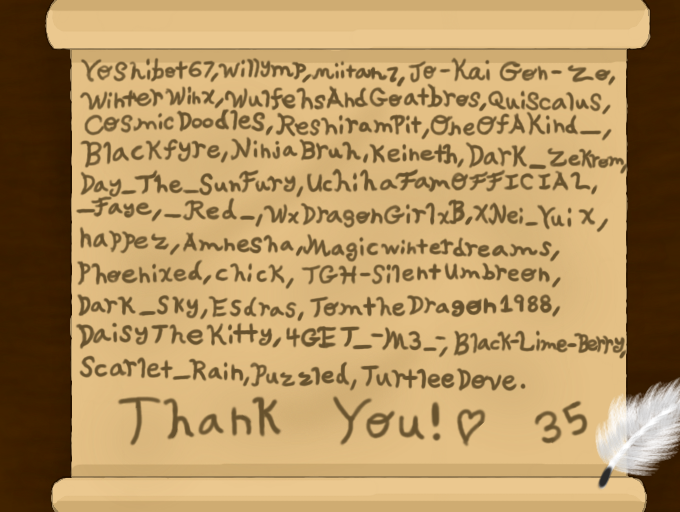 Yoshibot67,Willymp,miitanz,Jo-Kai Gon-Zo,
WinterWinx,WulfehsAndGoatbros,QuiScalus,
CosmicDoodles,ReshiramPit,OneOfAKind_,
Blackfyre,NinjaBruh,Keineth,Dark_Zekrom,
Day_The_SunFury,UchihaFamOFFICIAL,
_Faye,_Red_,WxDragonGirlxB,XNei_YuiX,
happez,Amnesha,Magicwinterdreams,
Phoenixed,chick,TGH-SilentUmbreon,
Dark_Sky,Esdras,TomtheDragon1988,
DaisyTheKitty,4GET_-M3_-,Black-Lime-Berry,
Scarlet_Rain,Puzzled,TurtleeDove.
Thank You!♡ 35